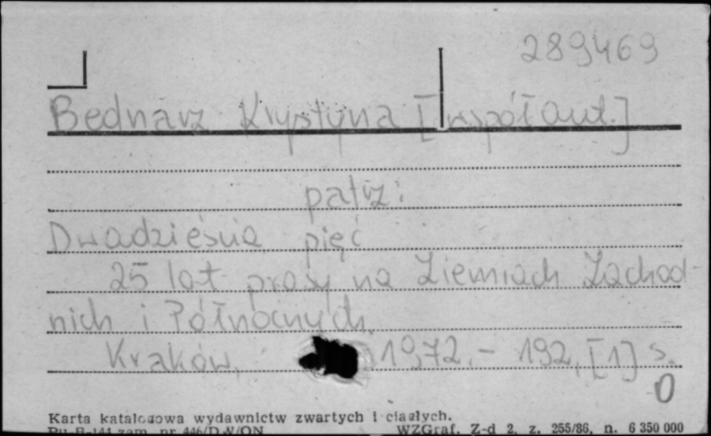 289469
Bednarz Krystyna [współaut.]
patrz:
Dwadzieścia pięć
25 lat prasy na Ziemiach Zachod-
nich i Północnych.
Kraków, 1972. - 192, [1] s.
0
Karta katalogowa wydawnictw zwartych i ciągłych.
Pu B-144 zam. nr 446/D.W/ON WZGraf. Z-d 2, z. 255/86, n. 6 350 000